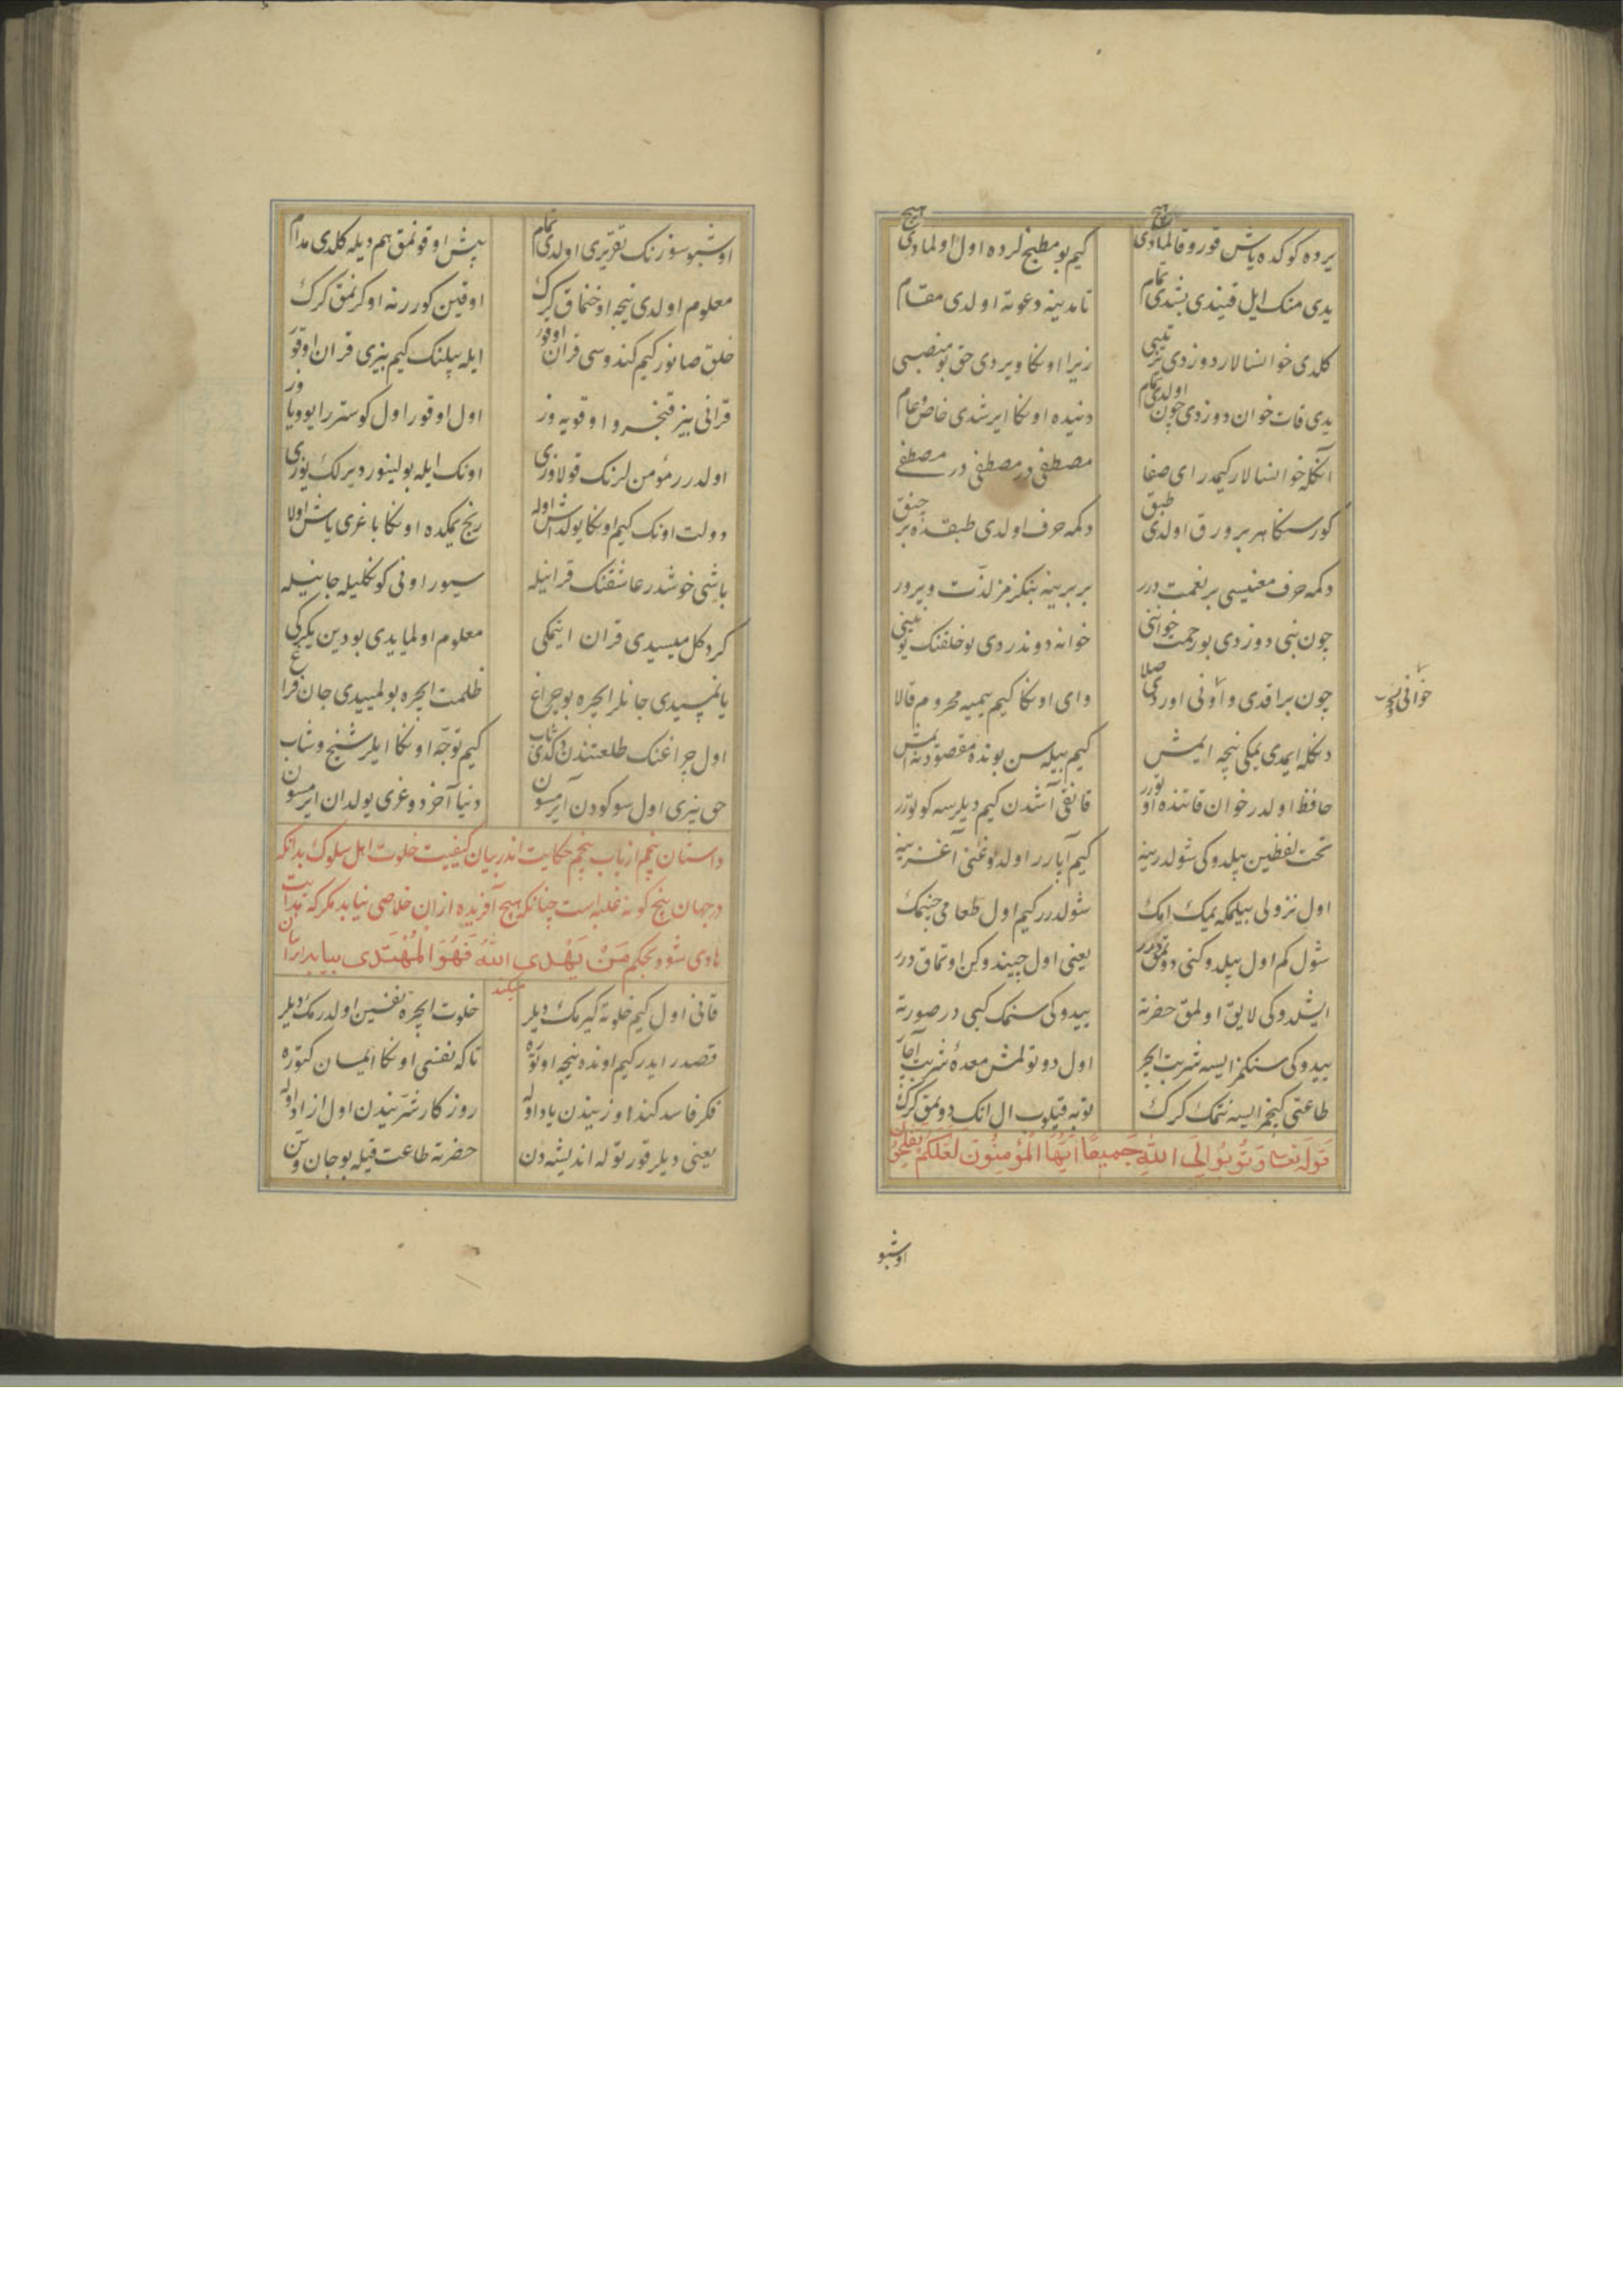 یرده کوکده یاش قورو قالمادی هیچ کیم بو مطبخلرده اول اولمادی هیچ
یدی منک ایل قیندی بشدی تمام تا مدینه دعوته اولدی مقام
کلدی خوانسالار دوزدی ترتیبی زیرا اونکا ویردی حق بو منصبی
یدی قات خوان دوزدی چون اولدی تمام دنیده اونکا ایرشدی خاص و عام
انکله خوانسالار کیمدر ای صفا مصطفی در مصطفی در مصطفی
کورسنکا هر بر ورق اولدی طبق دکمه حرف اولدی طبقده بر چنق
دکمه حرف معنیسی بر نعمت درر بر برینه بنکزمز لذت ویرور
چون نبی دوزدی بو رحمت خوانی خوانه دوندردی بو خلقنک یونینی
چون براقدی و اونی اوردی صلا وای اونکا کیم یمیه محروم قالا
خوانی
دنکله ایمدی یمکی نیجه ایمش کیم بیله سن بونده مقصود نه ایمش
حافظ اولدر خوان قاتنده اوتورر قانقی آشدن کیم دیلرسه کوتورر
تحت لفظین بیلدوکی شولدر ینه کیم آپارر اولدوغنی آغزینه
اول نزولی بیلمکه یمیک امک شولدرر کیم اول طعامی چینمک
شول کم اول بیلدوکنی دوتمق درر یعنی اول چیندوکن اوتماق درر
ایشلدوکی لایق اولمق حضرته ییدوکی سنمک کبی در صورته
ییدوکی سنکمز ایسه شربت ایچر اول دوتولمش معده شربت آچار
طاعتی کیچمز ایسه نتمک کرک توبه قیلوب ال انک دوتمق کرک
قوله تعالی وَتُوبُوا اِلَی اللهِ جَمیعًا اَیُّهَا الْمُؤْمِنُونَ لَعَلَّکُمْ تُفْلِحُونَ
اوشبو
اوشبو سوزنک تقریری اولدی تمام پیش اوقونمق هم دیله کلدی مدام
معلوم اولدی نیجه اوخنماق کرک اوقین کوررنه اوکرنمق کرک
خلق صانور کیم کندوسی قران اوقور ایله بیلنک کیم بیزی قران اوقور
قرانی بیز قنجرو اوقویه وز اول اوقور اول کوسترر ایو
اولدرر مؤمن لرنک قولاوزی اونک ایله بولینور دیرلک یوزی
دولت اونک کیم اونکا یولداش اوله رنج یمکده اونکا باغری باش اولا
باشی خوشدر عاشقنک قرانیله سیور اونی کونکلیله جانیله
کر دکل میسیدی قران ایتمکی معلوم اولمایدی بو دین یکرکی
یانمیسیدی جانلر ایچره بو چراغ ظلمت ایچره بولمییدی جان فراغ
اول چراغنک طلعتندن توجه اونکا ایلر شیخ و شاب
حق بیزی اول سوکودن آیرمسون دنیا آخر دوغری یولدان ایرمسون
داستان پنجم از باب پنجم حکایت اندر بیان کیفیت خلوت اهل سلوک بدانکه
در جهان پنج کونه غلبه است چنانکه هیچ آفریده از ان خلاصی نیابد مکر که هدایت
هادی شود بحکم مَنْ یَهْدِی اللهُ فَهُوَ الْمُهْتَدِی
میکند
قانی اول کیم خلوته کیرمک دیلر خلوت ایچره نفسین اولدرمک دیلر
قصد ایدر کیم اونده نیجه اوتوره تا که نفسی اونکا ایمان کتوره
فکر فاسد کندوزیندن یاد اوله روزکار شرّیندن اول ازاد اوله
یعنی دیلر قورتوله اندیشه دن حضرته طاعت قیله بو جان و تن